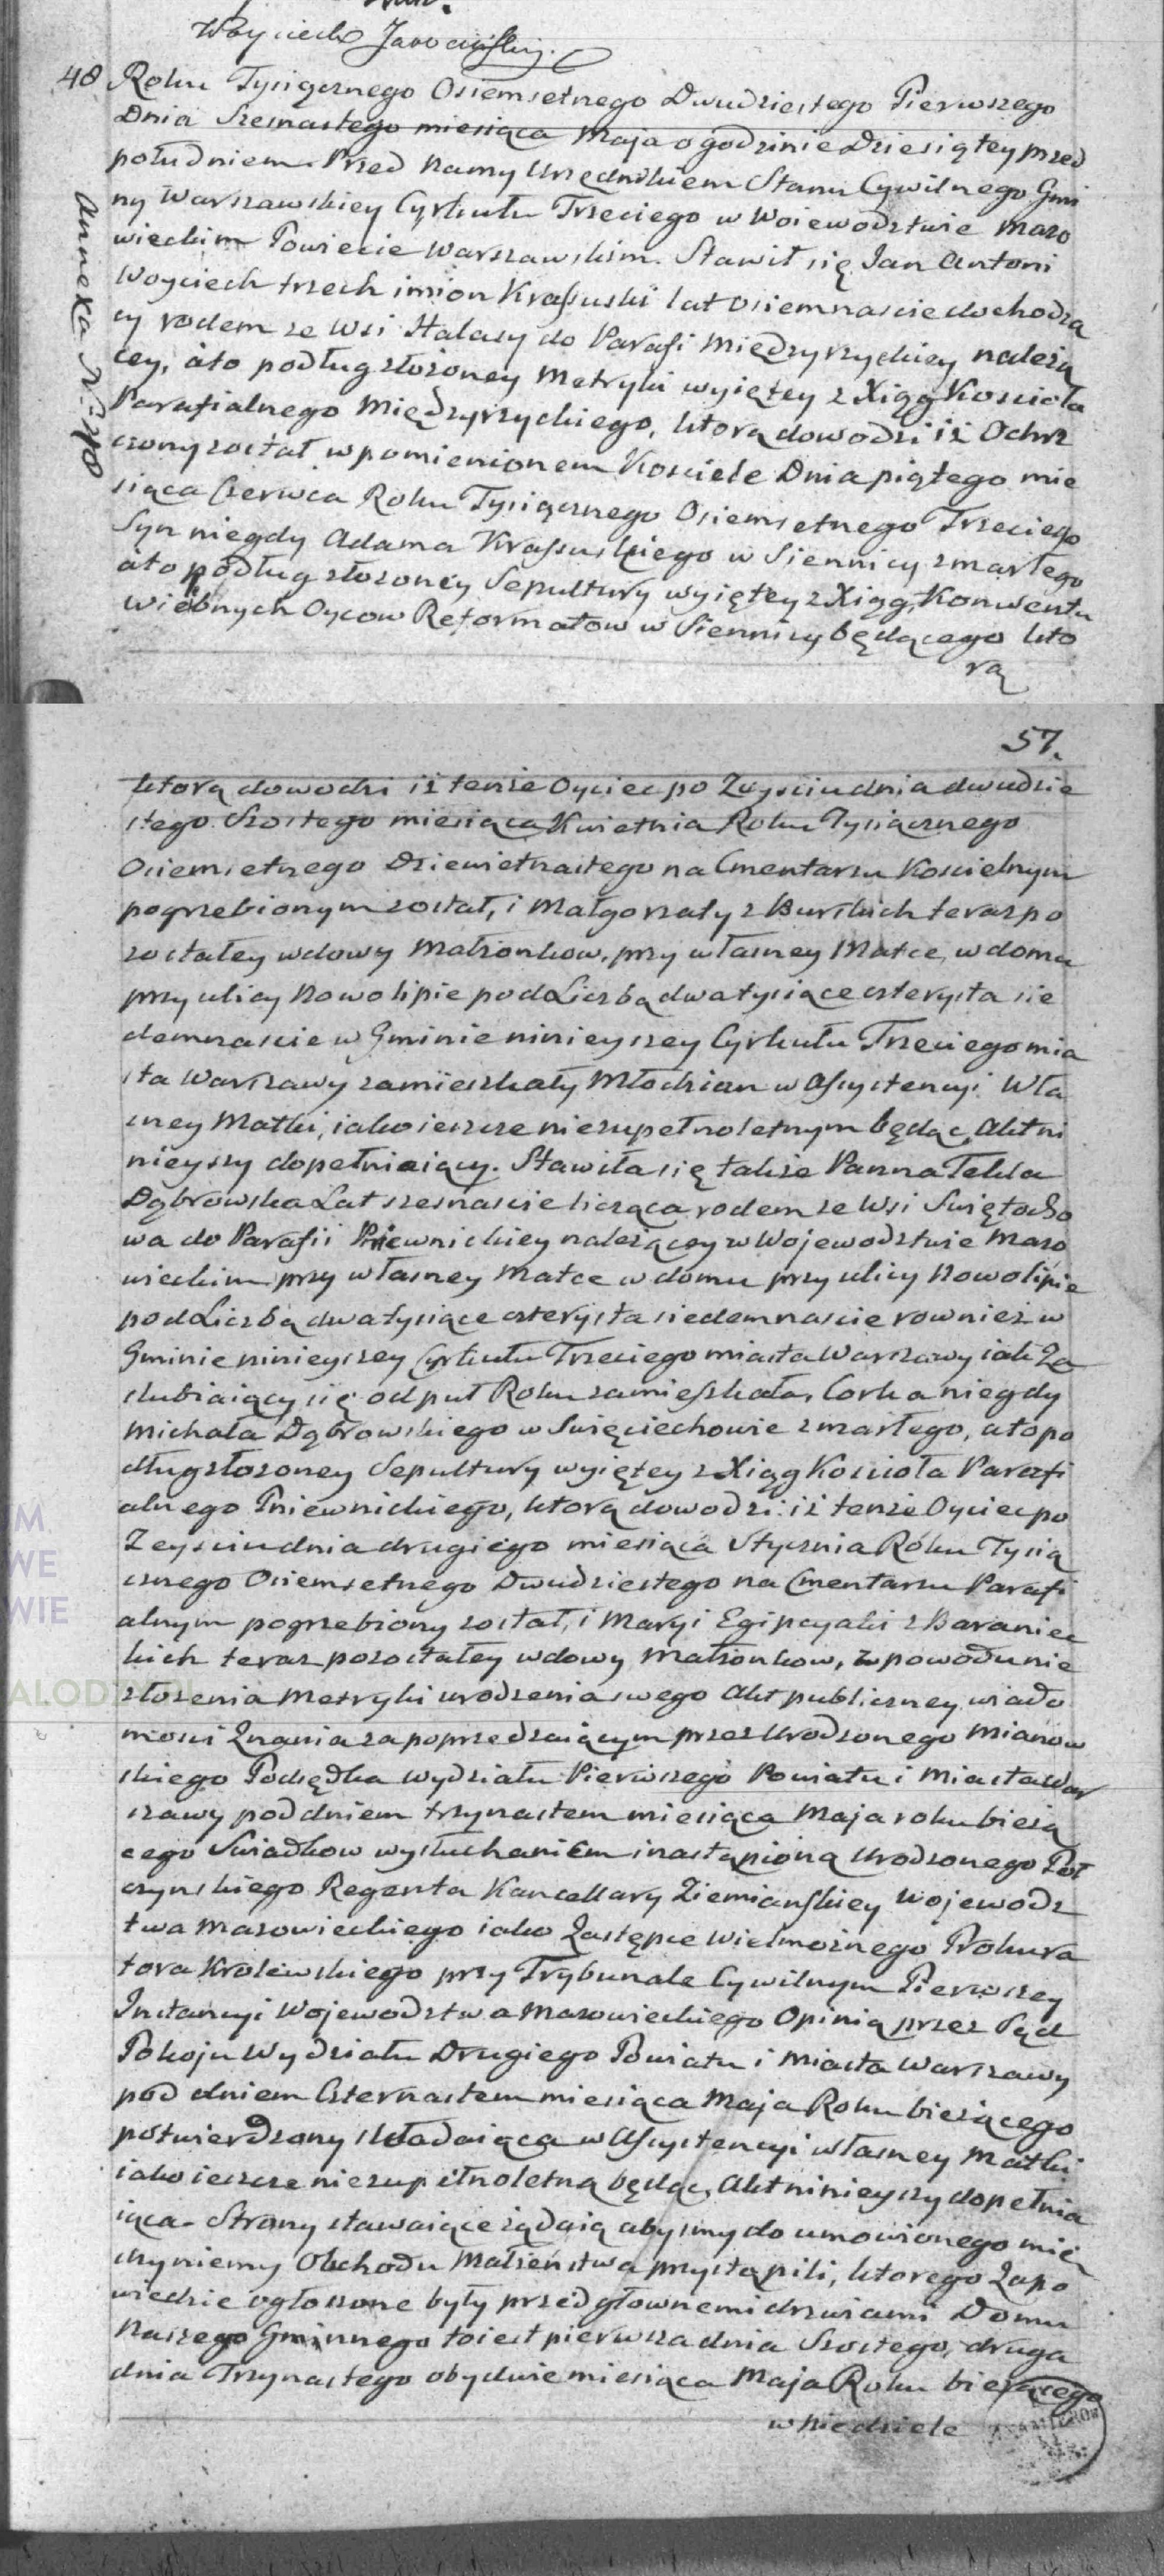 Woyciech Jarociński
48 Roku Tysiącznego Osiemsetnego Dwudziestego Pierwszego
Dnia Szesnastego miesiąca Maja o godzinie Dziesiątey przed
południem. Przed Namy Urzędnikiem Stanu Cywilnego Gmi
ny Warszawskiey Cyrkułu Trzeciego w Woiewodztwie Mazo
wieckim Powiecie Warszawskim. Stawił się Jan Antoni
Woyciech trzech imion Krassuski lat osiemnascie dochodzą
cy rodem ze Wsi Halasy do Parafi Międzyrzyckiey należą
cey, áto podług złożoney Metryki wyiętey z Xiąg Kościoła
Parafialnego Międzyrzyckiego, ktorą dowodzi iż Ochrz
czony został w pomienionem Kościele Dnia piątego mie
siąca Czerwca Roku Tysiącznego Osiemsetnego Trzeciego
Syn niegdy Adama Krassuskiego w Siennicy zmarłego
áto podług złożoney Sepultury wyiętey z Xiąg Konwentu
Wiebnych Oycow Reformatow w Siennicy będącego kto
rą
Annexa N. 270
57.
ktorą dowodzi iż tenże Oyciec po Zeysciu dnia dwudzie
stego Szostego miesiąca Kwietnia Roku Tysiącznego
Osiemsetnego Dziewietnastego na Cmentarzu Koscielnym
pogrzebionym został, i Małgorzaty z Burskich teraz po
zostałey wdowy Małzonkow, przy własney Matce w domu
przy ulicy Nowolipie pod Liczbą dwatysiące czterysta sie
demnascie w Gminie ninieyszey Cyrkułu Trzeciego mia
sta Warszawy zamieszkały Młodzian w Assystencyi Wła
sney Matki, iako ieszcze niezupełnoletnym będąc, Akt ni
nieyszy dopełniaiący. Stawiła się także Panna Tekla
Dąbrowska Lat szesnascie licząca rodem ze Wsi Swiętocho
wa do Parafii Pniewnickiey należącey w Wojewodztwie Mazo
wieckim przy własney Matce w domu przy ulicy Nowolipie
pod Liczbą dwatysiące czterysta siedemnascie rownież w
Gminie ninieyszey Cyrkułu Trzeciego miasta Warszawy iak Za
slubiaiący się od puł Roku zamieszkała, Corka niegdy
Michała Dąbrowskiego w Swięciechowie zmarłego, áto po
dług złożoney Sepultury wyiętey z Xiąg Kościoła Parafi
alnego Pniewnickiego, ktorą dowodzi iż tenże Oyciec po
Zeysciu dnia drugiego miesiąca Stycznia Roku Tysią
cznego Osiemsetnego Dwudziestego na Cmentarzu Parafi
alnym pogrzebiony został, i Maryi Egipcyaki z Baraniec
kich teraz pozostałey wdowy Małzonkow, z powodu nie
złożenia Metryki urodzenia swego Akt publiczney wiado
mosci Znania za poprzedzaiącym przez Urodzonego Mianow
skiego Podsędka Wydziału Pierwszego Powiatu i Miasta War
szawy pod dniem trzynastem miesiąca Maja roku bieżą
cego Swiadkow wysłuchaniem i nastąpioną Urodzonego
czynskiego Regenta Kancellary Ziemianskiey Wojewodz
twa Mazowieckiego iako Zastępce Wielmożnego Prokura
tora Krolewskiego przy Trybunale Cywilnym Pierwszey
Instancyi Wojewodztwa Mazowieckiego Opinią przez Sąd
Pokoju Wydziału Drugiego Powiatu i Miasta Warszawy
pod dniem Czternastem miesiąca Maja Roku bieżącego
potwierdzony składaiąca w Assystencyi własney Matki
iako ieszcze niezupełnoletną będąc, Akt ninieyszy dopełnia
iąca. Strony stawaiące żądaią abysmy do umowionego mię
dzy niemy Obchodu Małżeństwa przystąpili, ktorego Zapo
wiedzie ogłoszone były przed głownemi drzwiami Domu
Naszego Gminnego toiest pierwsza dnia Szostego, druga
dnia Trzynastego obydwie miesiąca Maja Roku bieżącego
w Niedziele